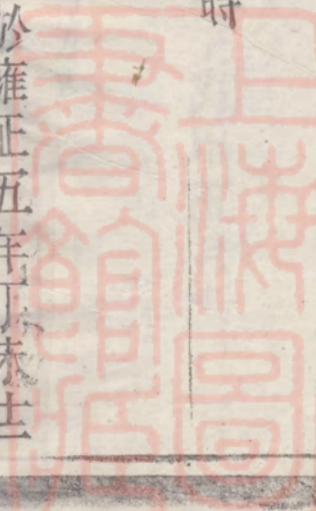 時
於雍正五年丁未士
上海圖
書館藏